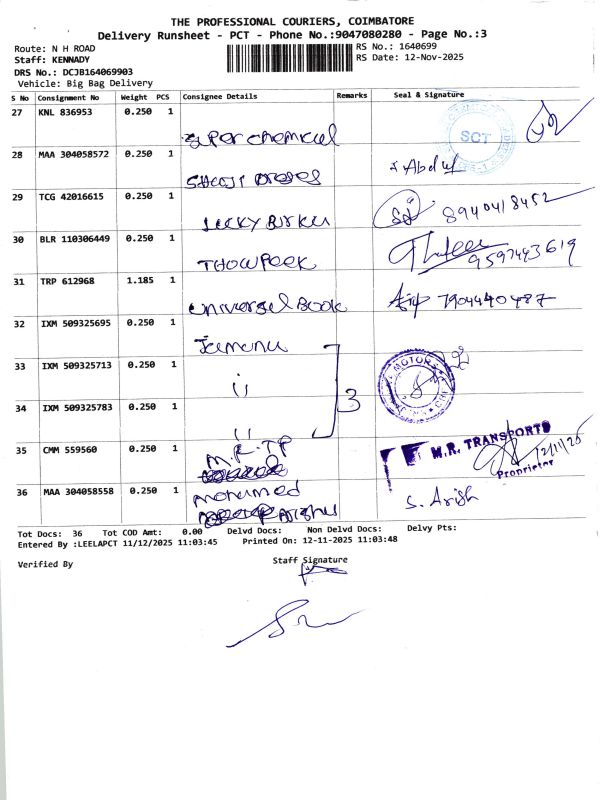 THE PROFESSIONAL COURIERS, COIMBATORE
Delivery Runsheet - PCT - Phone No.:9047080280 - Page No.:3
Route: N H ROAD
RS No.: 1640699
Staff: KENNADY
RS Date: 12-Nov-2025
DRS No.: DCJB164069903
Vehicle: Big Bag Delivery
S No Consignment No Weight PCS Consignee Details Remarks Seal & Signature
27 KNL 836953 0.250 1 Super chemical SCT
28 MAA 304058572 0.250 1 Abdul
29 TCG 42016615 0.250 1 8940418452
30 BLR 110306449 0.250 1 THOWFEEK 9597493619
31 TRP 612968 1.185 1 universel BOOK 7904440487
32 IXM 509325695 0.250 1
33 IXM 509325713 0.250 1 ii 3 MOTORS
34 IXM 509325783 0.250 1 ii
35 CMM 559560 0.250 1 M.R. TP M.R. TRANSPORTS 12/11/25
Proprietor
36 MAA 304058558 0.250 1 mohamed S. Arish
Tot Docs: 36 Tot COD Amt: 0.00 Delvd Docs: Non Delvd Docs: Delvy Pts:
Entered By :LEELAPCT 11/12/2025 11:03:45 Printed On: 12-11-2025 11:03:48
Verified By Staff Signature